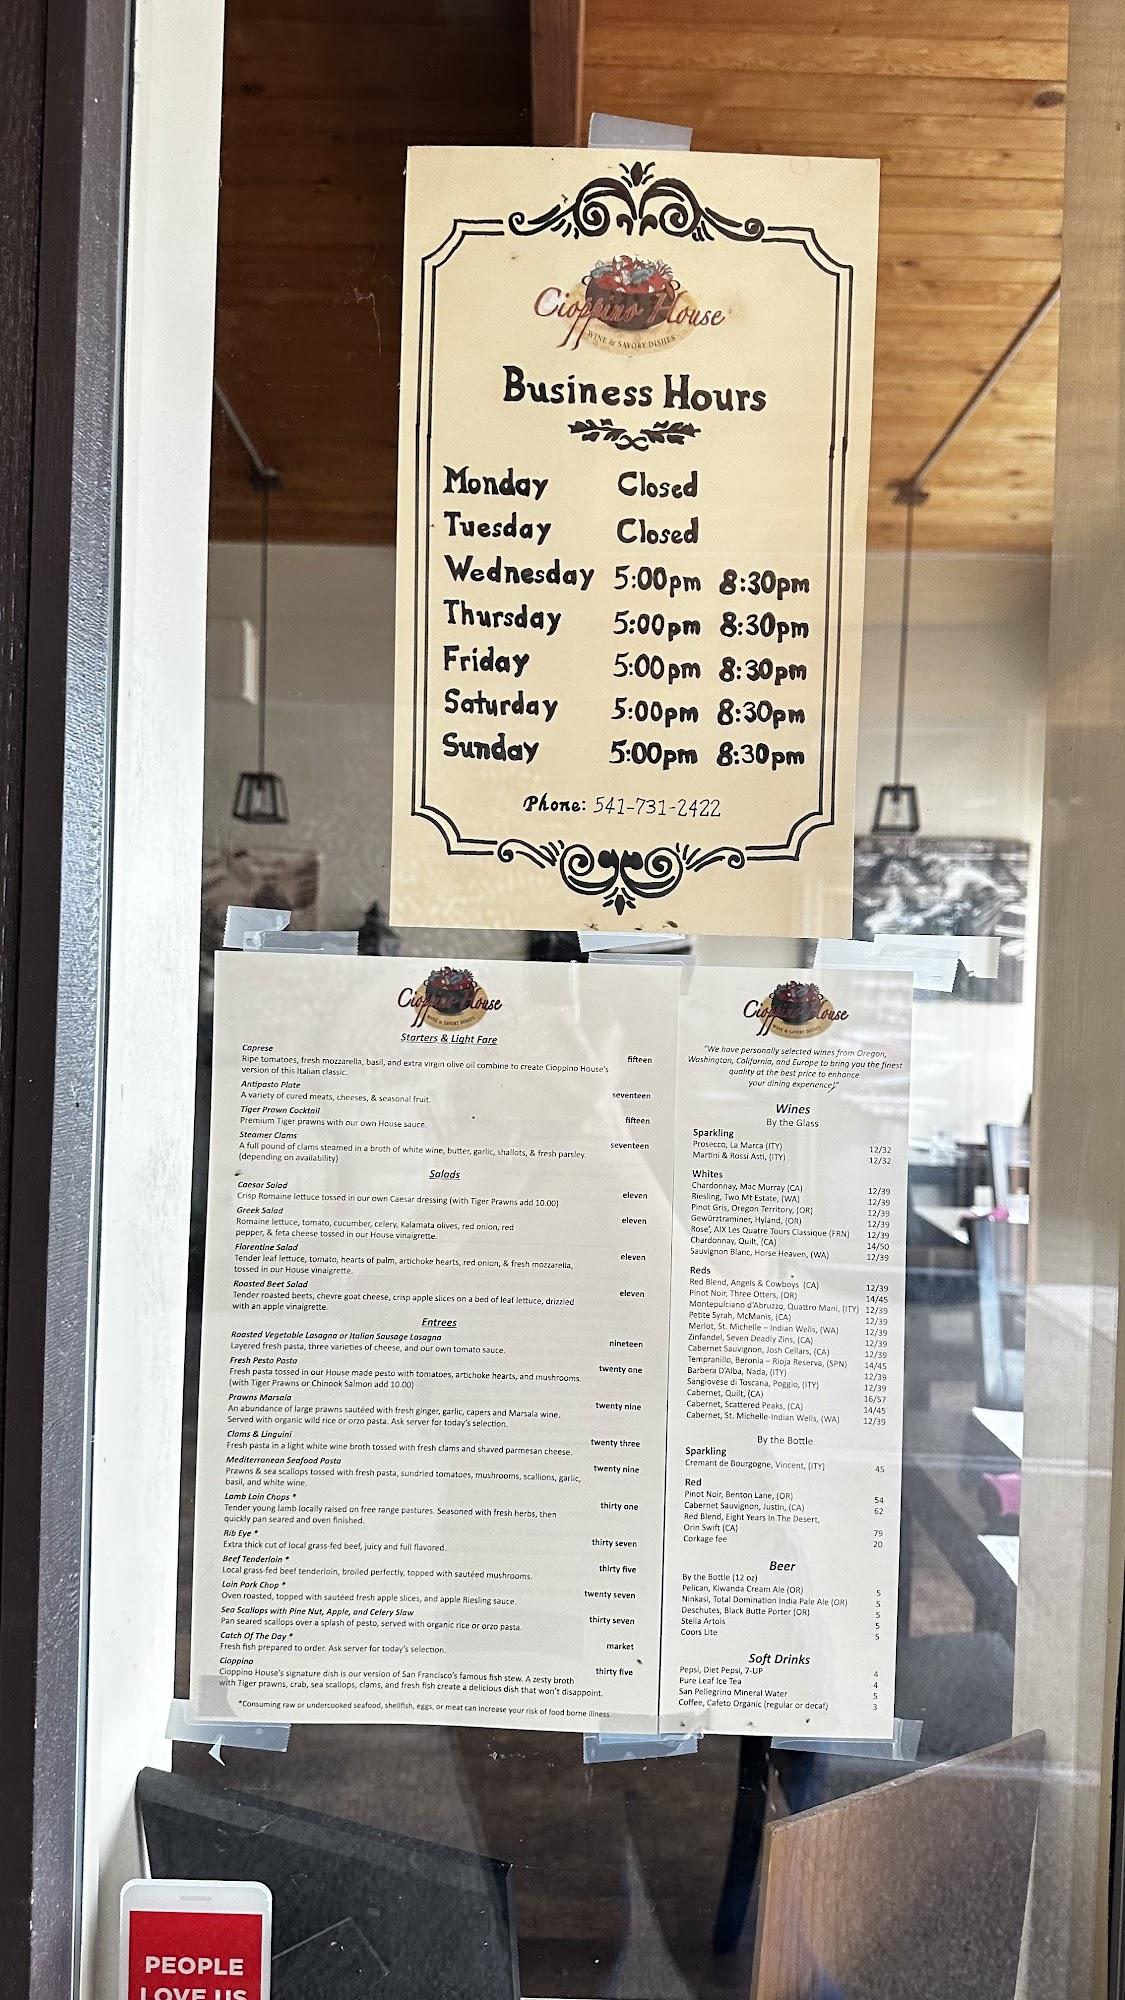 Cioppino House
WINE & SAVORY DISHES
Business Hours
Monday Closed
Tuesday Closed
Wednesday 5:00pm 8:30pm
Thursday 5:00pm 8:30pm
Friday 5:00pm 8:30pm
Saturday 5:00pm 8:30pm
Sunday 5:00pm 8:30pm
Phone: 541-731-2422
Cioppino House
WINE & SAVORY DISHES
Starters & Light Fare
Caprese
Ripe tomatoes, fresh mozzarella, basil, and extra virgin olive oil combine to create Cioppino House's fifteen
version of this Italian classic.
Antipasto Plate
A variety of cured meats, cheeses, & seasonal fruit. seventeen
Tiger Prawn Cocktail
Premium Tiger prawns with our own House sauce. fifteen
Steamer Clams
A full pound of clams steamed in a broth of white wine, butter, garlic, shallots, & fresh parsley. seventeen
(depending on availability)
Salads
Caesar Salad
Crisp Romaine lettuce tossed in our own Caesar dressing (with Tiger Prawns add 10.00) eleven
Greek Salad
Romaine lettuce, tomato, cucumber, celery, Kalamata olives, red onion, red eleven
pepper, & feta cheese tossed in our House vinaigrette.
Florentine Salad
Tender leaf lettuce, tomato, hearts of palm, artichoke hearts, red onion, & fresh mozzarella, eleven
tossed in our House vinaigrette.
Roasted Beet Salad
Tender roasted beets, chevre goat cheese, crisp apple slices on a bed of leaf lettuce, drizzled eleven
with an apple vinaigrette.
Entrees
Roasted Vegetable Lasagna or Italian Sausage Lasagna
Layered fresh pasta, three varieties of cheese, and our own tomato sauce. nineteen
Fresh Pesto Pasta
Fresh pasta tossed in our House made pesto with tomatoes, artichoke hearts, and mushrooms. twenty one
(with Tiger Prawns or Chinook Salmon add 10.00)
Prawns Marsala
An abundance of large prawns sautéed with fresh ginger, garlic, capers and Marsala wine. twenty nine
Served with organic wild rice or orzo pasta. Ask server for today's selection.
Clams & Linguini
Fresh pasta in a light white wine broth tossed with fresh clams and shaved parmesan cheese. twenty three
Mediterranean Seafood Pasta
Prawns & sea scallops tossed with fresh pasta, sundried tomatoes, mushrooms, scallions, garlic, twenty nine
basil, and white wine.
Lamb Loin Chops *
Tender young lamb locally raised on free range pastures. Seasoned with fresh herbs, then thirty one
quickly pan seared and oven finished.
Rib Eye *
Extra thick cut of local grass-fed beef, juicy and full flavored. thirty seven
Beef Tenderloin *
Local grass-fed beef tenderloin, broiled perfectly, topped with sautéed mushrooms. thirty five
Loin Pork Chop *
Oven roasted, topped with sautéed fresh apple slices, and apple Riesling sauce. twenty seven
Sea Scallops with Pine Nut, Apple, and Celery Slaw
Pan seared scallops over a splash of pesto, served with organic rice or orzo pasta. thirty seven
Catch Of The Day *
Fresh fish prepared to order. Ask server for today's selection. market
Cioppino
Cioppino House's signature dish is our version of San Francisco's famous fish stew. A zesty broth thirty five
with Tiger prawns, crab, sea scallops, clams, and fresh fish create a delicious dish that won't disappoint.
*Consuming raw or undercooked seafood, shellfish, eggs, or meat can increase your risk of food borne illness.
Cioppino House
WINE & SAVORY DISHES
"We have personally selected wines from Oregon,
Washington, California, and Europe to bring you the finest
quality at the best price to enhance
your dining experience!"
Wines
By the Glass
Sparkling
Prosecco, La Marca (ITY) 12/32
Martini & Rossi Asti, (ITY) 12/32
Whites
Chardonnay, Mac Murray (CA) 12/39
Riesling, Two Mt Estate, (WA) 12/39
Pinot Gris, Oregon Territory, (OR) 12/39
Gewürztraminer, Hyland, (OR) 12/39
Rose', AIX Les Quatre Tours Classique (FRN) 12/39
Chardonnay, Quilt, (CA) 14/50
Sauvignon Blanc, Horse Heaven, (WA) 12/39
Reds
Red Blend, Angels & Cowboys (CA) 12/39
Pinot Noir, Three Otters, (OR) 14/45
Montepulciano d'Abruzzo, Quattro Mani, (ITY) 12/39
Petite Syrah, McManis, (CA) 12/39
Merlot, St. Michelle – Indian Wells, (WA) 12/39
Zinfandel, Seven Deadly Zins, (CA) 12/39
Cabernet Sauvignon, Josh Cellars, (CA) 12/39
Tempranillo, Beronia – Rioja Reserva, (SPN) 14/45
Barbera D'Alba, Nada, (ITY) 12/39
Sangiovese di Toscana, Poggio, (ITY) 12/39
Cabernet, Quilt, (CA) 16/57
Cabernet, Scattered Peaks, (CA) 14/45
Cabernet, St. Michelle-Indian Wells, (WA) 12/39
By the Bottle
Sparkling
Cremant de Bourgogne, Vincent, (ITY) 45
Red
Pinot Noir, Benton Lane, (OR) 54
Cabernet Sauvignon, Justin, (CA) 62
Red Blend, Eight Years In The Desert,
Orin Swift (CA) 79
Corkage fee 20
Beer
By the Bottle (12 oz)
Pelican, Kiwanda Cream Ale (OR) 5
Ninkasi, Total Domination India Pale Ale (OR) 5
Deschutes, Black Butte Porter (OR) 5
Stella Artois 5
Coors Lite 5
Soft Drinks
Pepsi, Diet Pepsi, 7-UP 4
Pure Leaf Ice Tea 4
San Pellegrino Mineral Water 5
Coffee, Cafeto Organic (regular or decaf) 3
PEOPLE
LOVE US